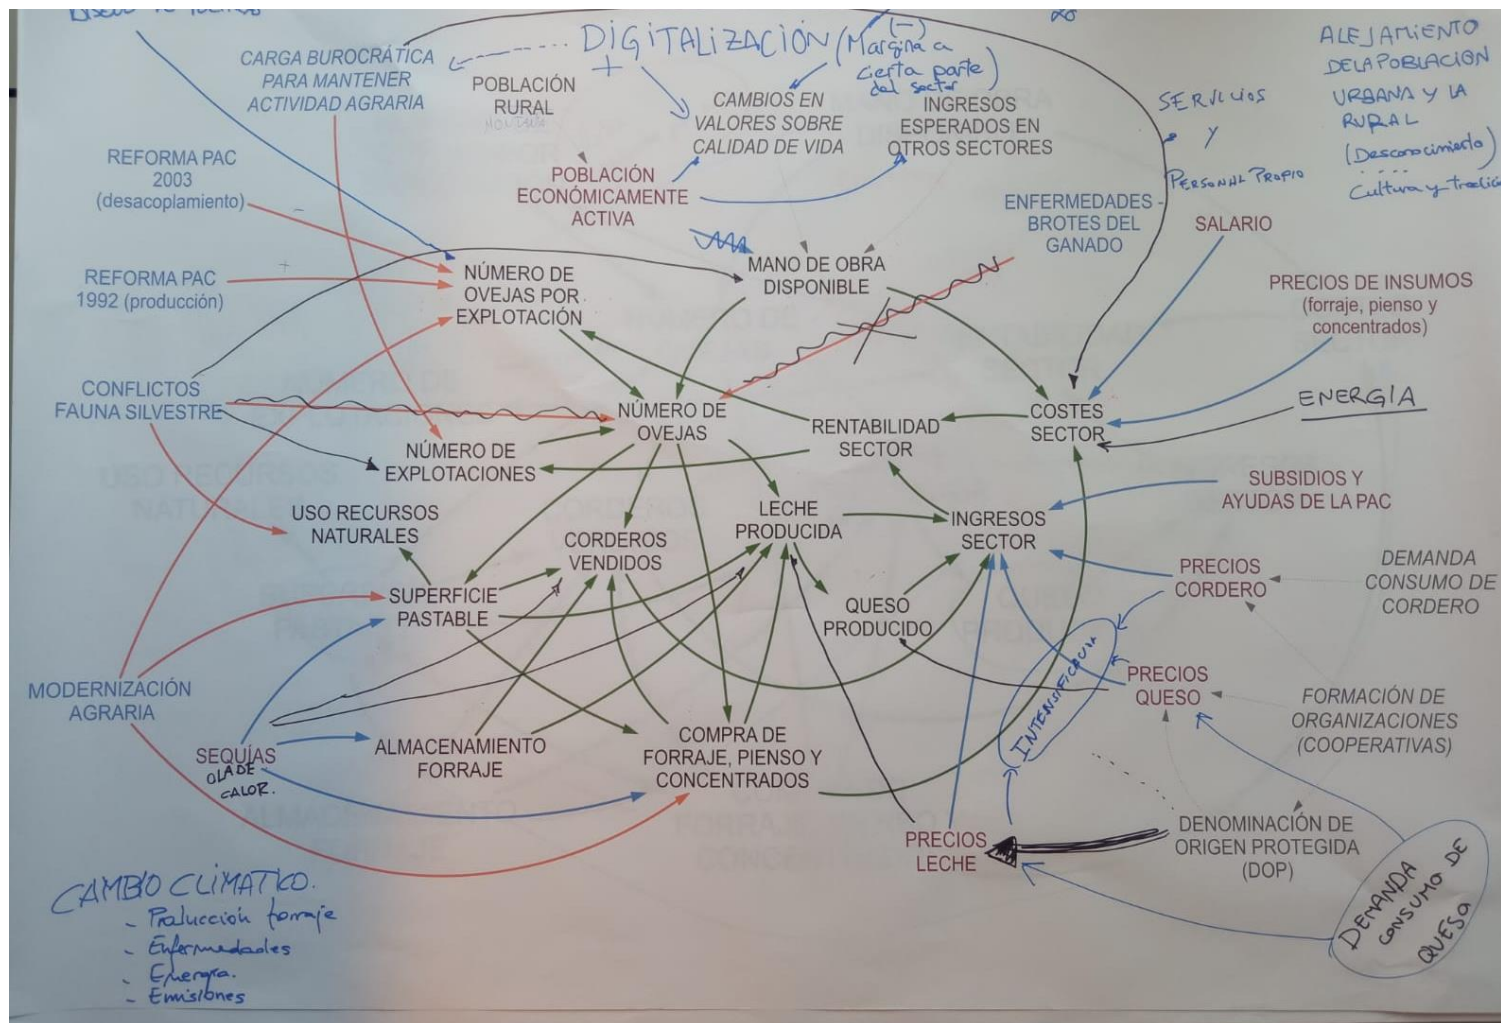 DIGITALIZACIÓN
(-)
(Margina a
cierta parte)
del sector
+
CARGA BUROCRÁTICA
PARA MANTENER
ACTIVIDAD AGRARIA
POBLACIÓN
RURAL
MONTAÑA
CAMBIOS EN
VALORES SOBRE
CALIDAD DE VIDA
INGRESOS
ESPERADOS EN
OTROS SECTORES
SERVICIOS
Y
PERSONAL PROPIO
ALEJAMIENTO
DE LA POBLACIÓN
URBANA Y LA
RURAL
(Desconocimiento)
Cultura y
REFORMA PAC
2003
(desacoplamiento)
-
POBLACIÓN
ECONÓMICAMENTE
ACTIVA
ENFERMEDADES -
BROTES DEL
GANADO
SALARIO
REFORMA PAC
1992 (producción)
+
NÚMERO DE
OVEJAS POR
EXPLOTACIÓN
MANO DE OBRA
DISPONIBLE
PRECIOS DE INSUMOS
(forraje, pienso y
concentrados)
CONFLICTOS
FAUNA SILVESTRE
NÚMERO DE
OVEJAS
RENTABILIDAD
SECTOR
COSTES
SECTOR
ENERGÍA
NÚMERO DE
EXPLOTACIONES
SUBSIDIOS Y
AYUDAS DE LA PAC
USO RECURSOS
NATURALES
CORDEROS
VENDIDOS
LECHE
PRODUCIDA
INGRESOS
SECTOR
PRECIOS
CORDERO
DEMANDA
CONSUMO DE
CORDERO
SUPERFICIE
PASTABLE
QUESO
PRODUCIDO
INTENSIFICACIÓN
PRECIOS
QUESO
FORMACIÓN DE
ORGANIZACIONES
(COOPERATIVAS)
MODERNIZACIÓN
AGRARIA
SEQUÍAS
OLA DE
CALOR.
ALMACENAMIENTO
FORRAJE
COMPRA DE
FORRAJE, PIENSO Y
CONCENTRADOS
PRECIOS
LECHE
DENOMINACIÓN DE
ORIGEN PROTEGIDA
(DOP)
DEMANDA
CONSUMO DE
QUESO
CAMBIO CLIMATICO.
- Producción forraje
- Enfermedades
- Energía.
- Emisiones